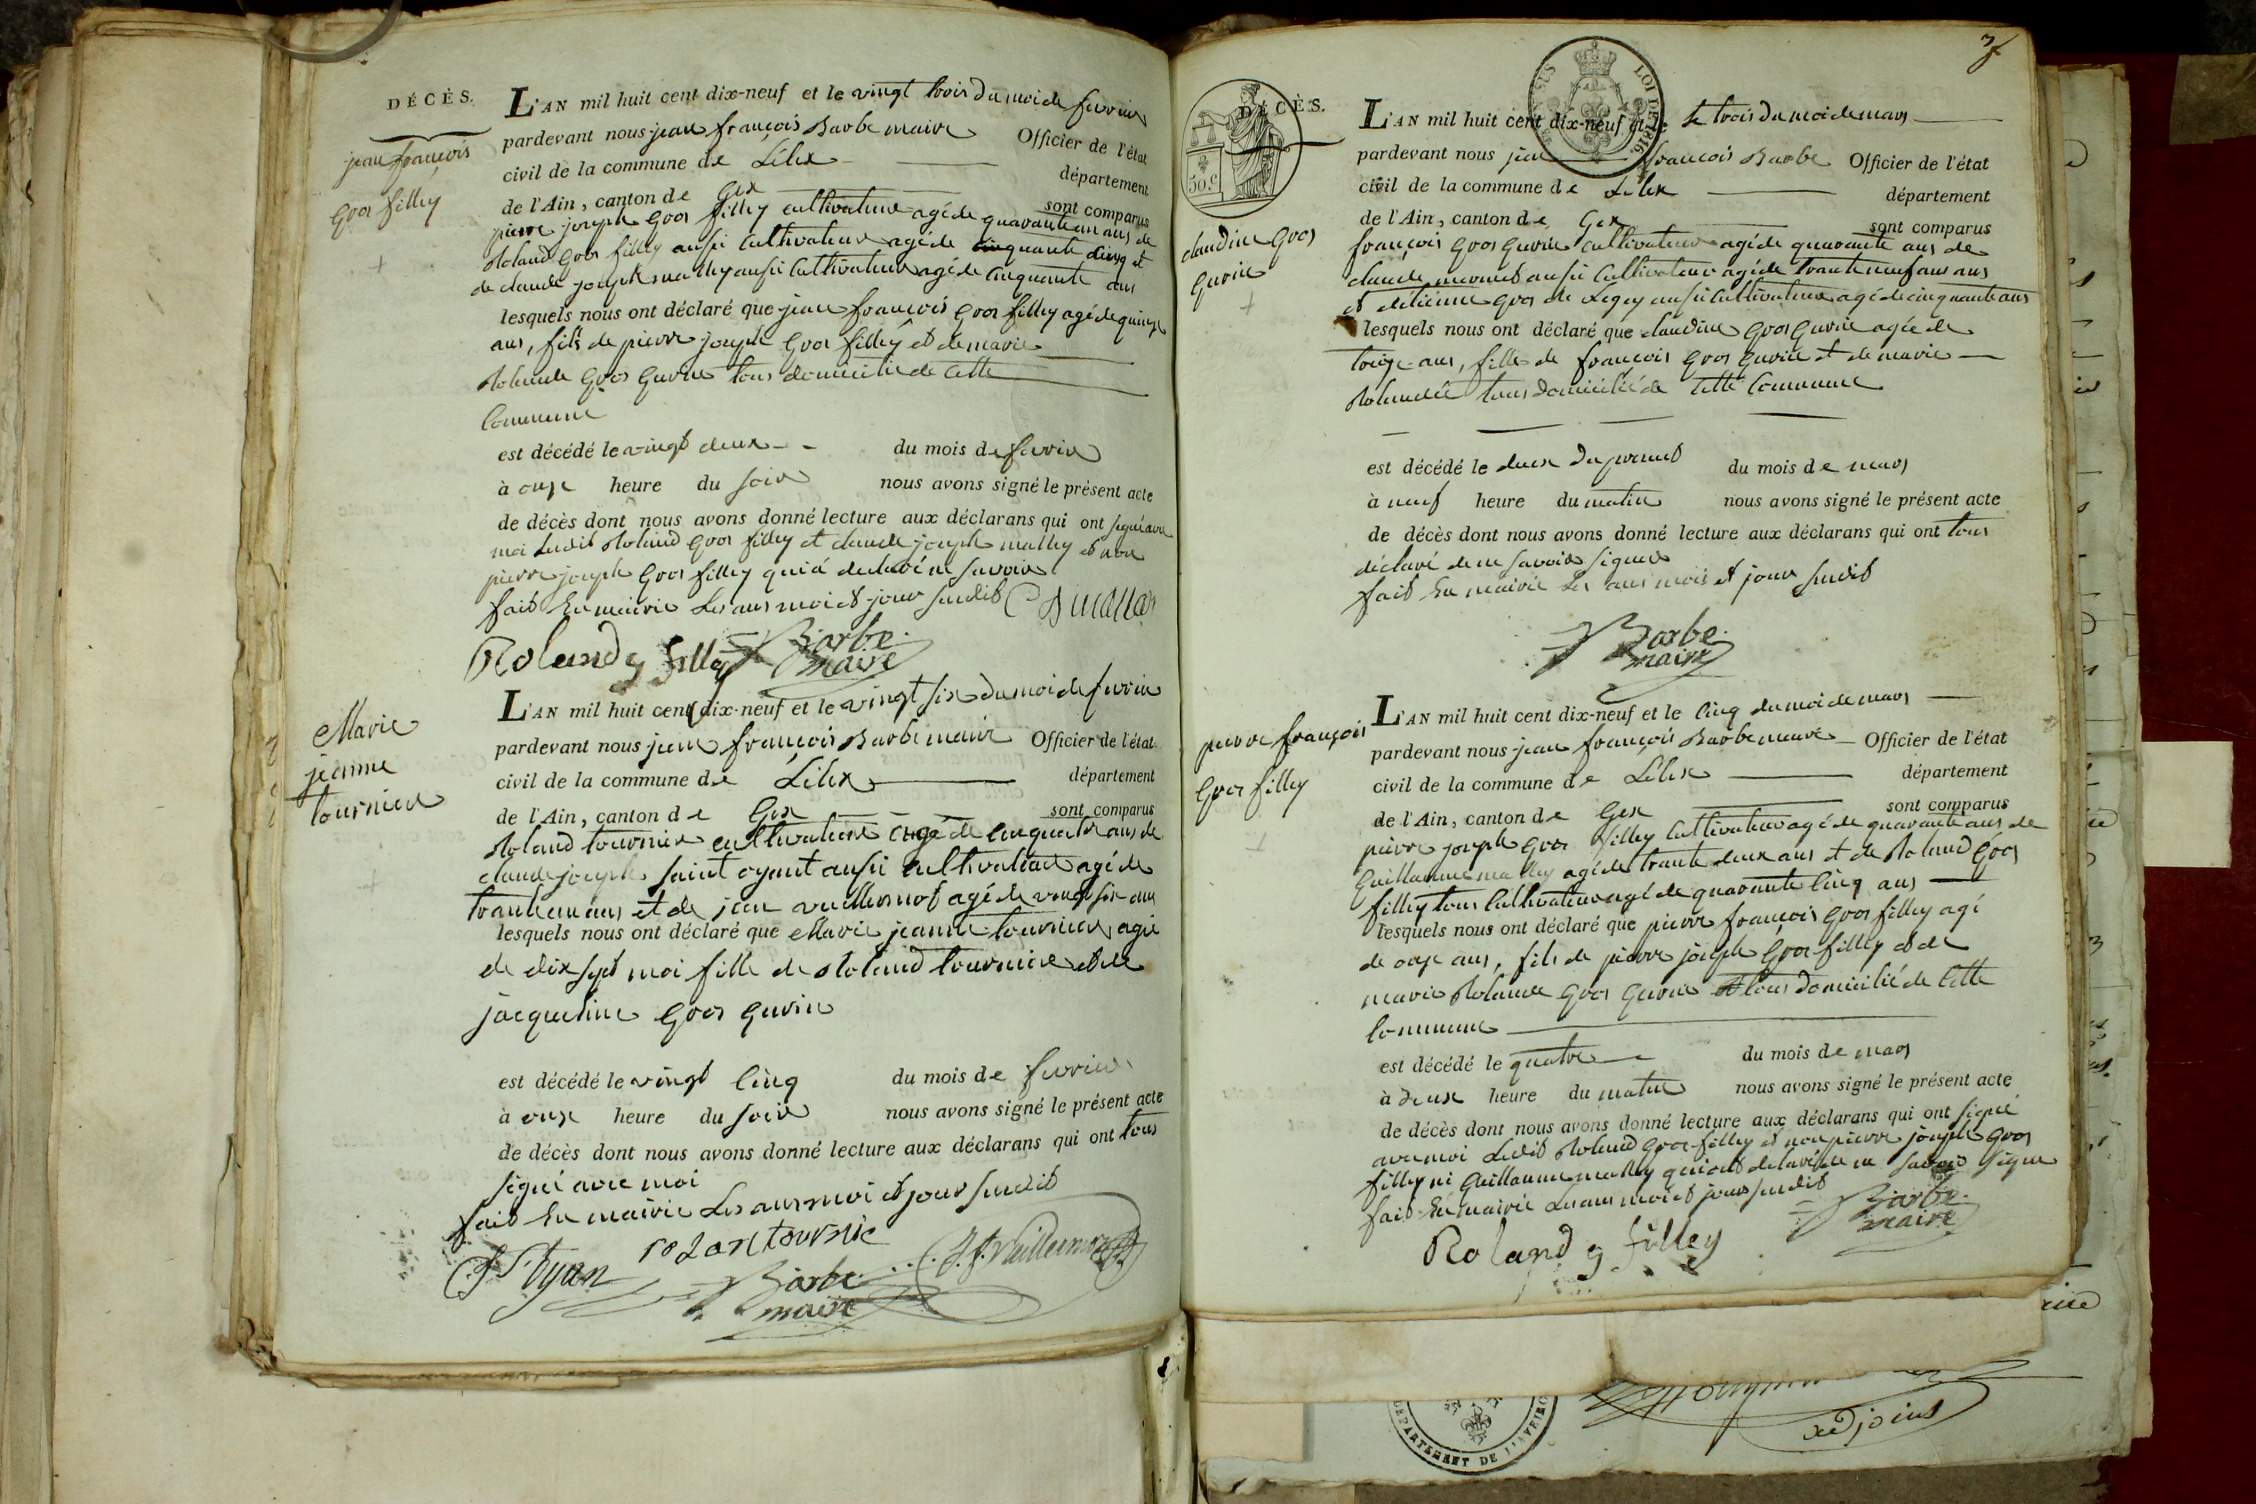 DÉCÈS.
jean françois
gros filley
L'AN mil huit cent dix-neuf et le vingt trois du moi de fevrier
pardevant nous jean françois Barbe maire Officier de l'état
civil de la commune de Lélex département
de l'Ain, canton de Gex sont comparus
pierre joseph gros filley cultivateur agé de quarante un ans de
Roland gros filley aussi cultivateur agé de quarante cinq et
de claude joseph mathey aussi cultivateur agé de cinquante ans
lesquels nous ont déclaré que jean françois gros filley agé de quinze
ans, fils de pierre joseph gros filley et de marie
Rolande gros gurin tous domicilié de cette
Commune
est décédé le vingt deux du mois de fevrier
à onze heure du soir nous avons signé le présent acte
de décès dont nous avons donné lecture aux déclarans qui ont signé avec
moi ledit Roland gros filley et claude joseph mathey et non
pierre joseph gros filley qui a declaré ne savoir
fait En mairie Les ans moi et jour susdit
Roland g filley Barbe
maire
Marie
jeanne
tournier
L'AN mil huit cent dix-neuf et le vingt six du moi de fevrier
pardevant nous jean françois Barbe maire Officier de l'état
civil de la commune de Lélex département
de l'Ain, canton de Gex sont comparus
Roland tournier cultivateur agé de cinquante ans de
claude joseph saint oyant aussi cultivateur agé de
trante un ans et de jean vuillermot agé de vingt six ans
lesquels nous ont déclaré que Marie jeanne tournier agée
de dix sept moi fille de Roland tournier et de
jacqueline gros gurin
est décédé le vingt cinq du mois de fevrier
à onze heure du soir nous avons signé le présent acte
de décès dont nous avons donné lecture aux déclarans qui ont tous
signé avec moi
fait En mairie Les ans moi et jour susdit
rolan tournie
Barbe
maire
DÉCÈS.
50.c
LOI DE 1816.
claudine gros
gurin
L'AN mil huit cent dix-neuf et le le trois du moi de mars
pardevant nous jean françois Barbe Officier de l'état
civil de la commune de Lélex département
de l'Ain, canton de Gex sont comparus
françois gros gurin cultivateur agé de quarante ans de
claude mermet aussi cultivateur agé de trante neuf ans ans
et detienne gros de Legey aussi cultivateur agé de cinquante ans
lesquels nous ont déclaré que claudine gros gurin agée de
treize ans, fille de françois gros gurin et de marie
Rolandée tous domicilié de cette commune
est décédé le deux du presnet du mois de mars
à neuf heure du matin nous avons signé le présent acte
de décès dont nous avons donné lecture aux déclarans qui ont tous
déclaré de ne savoir signer
fait En mairie Les ans mois et jour susdit
Barbe
maire
pierre françois
gros filley
L'AN mil huit cent dix-neuf et le cinq du moi de mars
pardevant nous jean françois Barbe maire Officier de l'état
civil de la commune de Lélex département
de l'Ain, canton de Gex sont comparus
pierre joseph gros filley cultivateur agé de quarante ans de
Guillaume mathey agé de trante deux ans et de Roland gros
filley tous cultivateur agé de quarante cinq ans
lesquels nous ont déclaré que pierre françois gros filley agé
de onze ans, fils de pierre joseph gros filley et de
marie Rolande gros gurin tous domicilié de cette
commune
est décédé le quatre du mois de mars
à deux heure du matin nous avons signé le présent acte
de décès dont nous avons donné lecture aux déclarans qui ont signé
avec moi Ledit Roland gros filley et non pierre joseph gros
filley ni Guillaume mathey qui ont declaré de ne savoir signe
fait En mairie Les ans moi et jour susdit
Barbe
maire
Roland g filley
DEPARTEMENT DE L'AVEIRON
adjoint